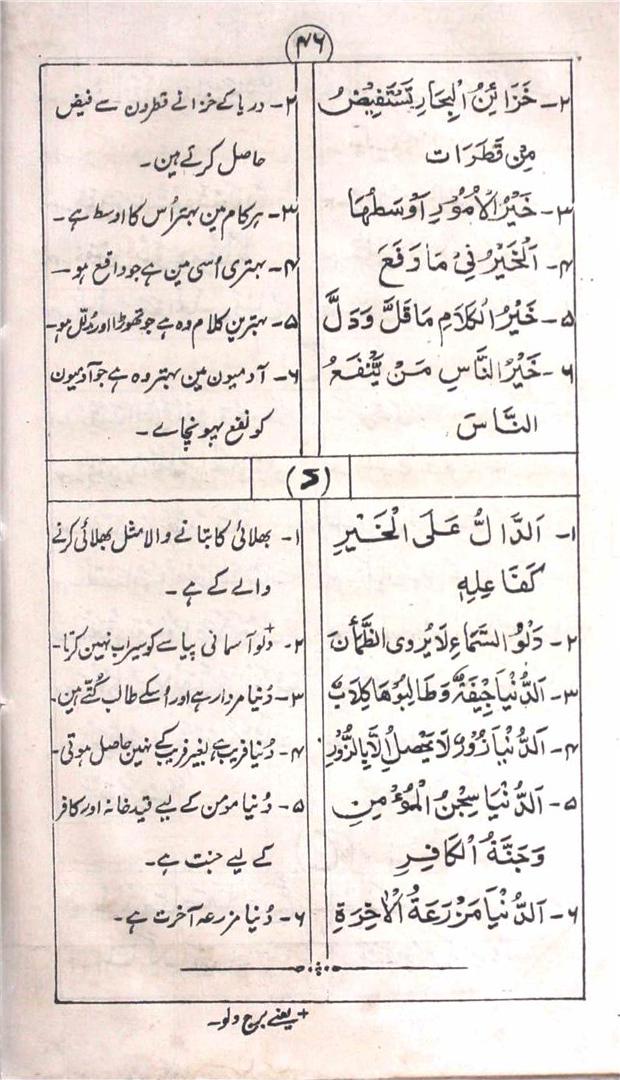 ۴۶
۲- خَزَائِنُ الْبِحَارِ تَسْتَفِيْضُ
مِنْ قَطَرَات
۳- خَيْرُ الْاُمُوْرِ اَوْسَطُهَا
۴- اَلْخَيْرُ فِىْ مَا وَقَعَ
۵- خَيْرُ الْكَلَامِ مَا قَلَّ وَدَلَّ
۶- خَيْرُ النَّاسِ مَنْ يَّنْفَعُ
النَّاسَ
۲- دریا کے خزانے قطرون سے فیض
حاصل کرتے ہین۔
۳- ہر کام مین بہتر اُس کا اوسط ہے۔
۴- بہتری اُسی مین ہے جو واقع ہو۔
۵- بہترین کلام وہ ہے جو تھوڑا اور مدلّل ہو۔
۶- آدمیون مین بہتر وہ ہے جو آدمیون
کو نفع پہونچاے۔
(د)
۱- اَلدَّالُّ عَلَى الْخَيْرِ
كَفَاعِلِهٖ
۲- دَلْوُ السَّمَاءِ لَا يُرْوِى الظَّمْاٰنَ
۳- اَلدُّنْيَا جِيْفَةٌ وَطَالِبُوْهَا كِلَابٌ
۴- اَلدُّنْيَا زُوْرٌ لَا يَحْصِلُ اِلَّا بِالزُّوْرِ
۵- اَلدُّنْيَا سِجْنُ الْمُؤْمِنِ
وَجَنَّةُ الْكَافِرِ
۶- اَلدُّنْيَا مَزْرَعَةُ الْاٰخِرَةِ
۱- بھلائی کا بتانے والا مثل بھلائی کرنے
والے کے ہے۔
۲- دلو+ آسمانی پیاسے کو سیراب نہین کرتا۔
۳- دُنیا مردار ہے اور اُسکے طالب کُتّے ہین۔
۴- دُنیا فریب ہے بغیر فریب کے نہین حاصل ہوتی۔
۵- دُنیا مومن کے لیے قید خانہ اور کافر
کے لیے جنت ہے۔
۶- دُنیا مزرعہ آخرت ہے۔
+ یعنے برج دلو۔